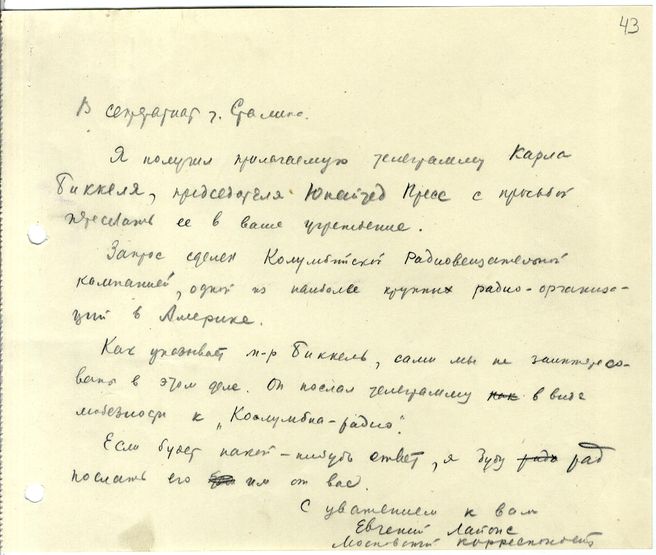 43
В секретариат т. Сталина.
Я получил прилагаемую телеграмму Карла
Биккеля, председателя Юнайтед Пресс с просьбой
переслать ее в ваше учреждение.
Запрос сделан Колумбийской Радиовещательной
компанией, одной из наиболее крупных радио-организа-
ций в Америке.
Как указывает м-р Биккель, сами мы не заинтересо-
ваны в этом деле. Он послал телеграмму как в виде
любезности к „Коолумбиа-радио".
Если будет какой-нибудь ответ, я буду рад
послать его им от вас.
С уважением к вам
Евгений Лайонс
Московский корреспондент